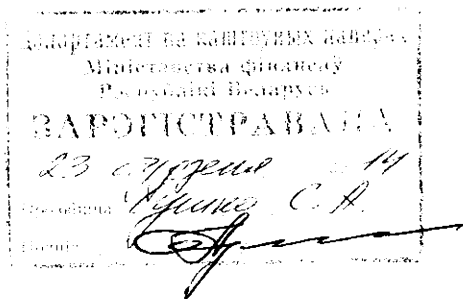 Дэпартамент па каштоўных паперах
Міністэрства фінансаў
Рэспублікі Беларусь
ЗАРЭГІСТРАВАНА
23 студзеня 14
С. А.